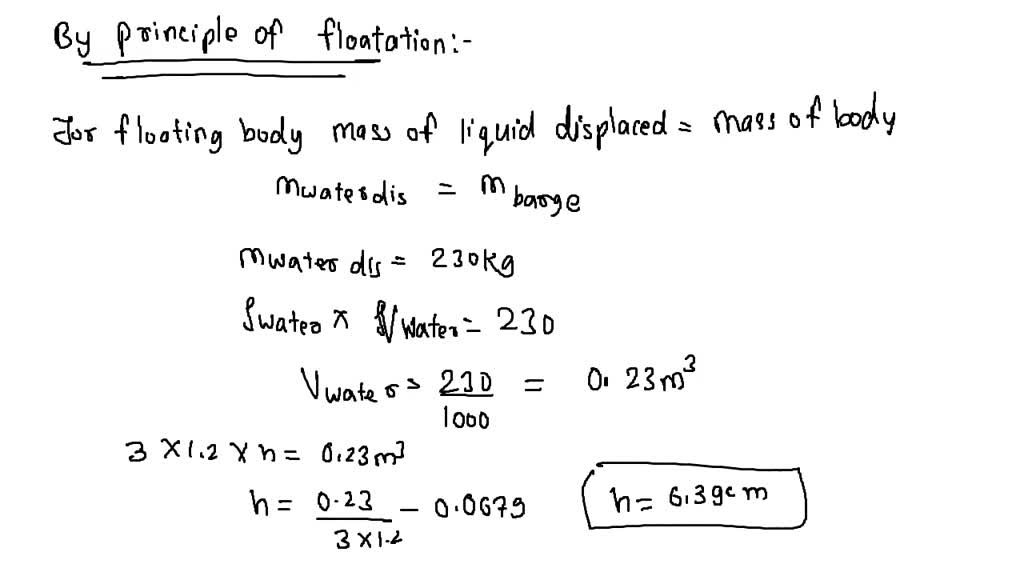 By principle of floatation:-
For floating body mass of liquid displaced = mass of body
mwater dis = m barge
mwater dis = 230kg
ρwater × Vwater = 230
Vwater = 230/1000 = 0.23m³
3 × 1.2 × h = 0.23m³
h = 0.23/3×1.2 - 0.0679
h = 6.39cm